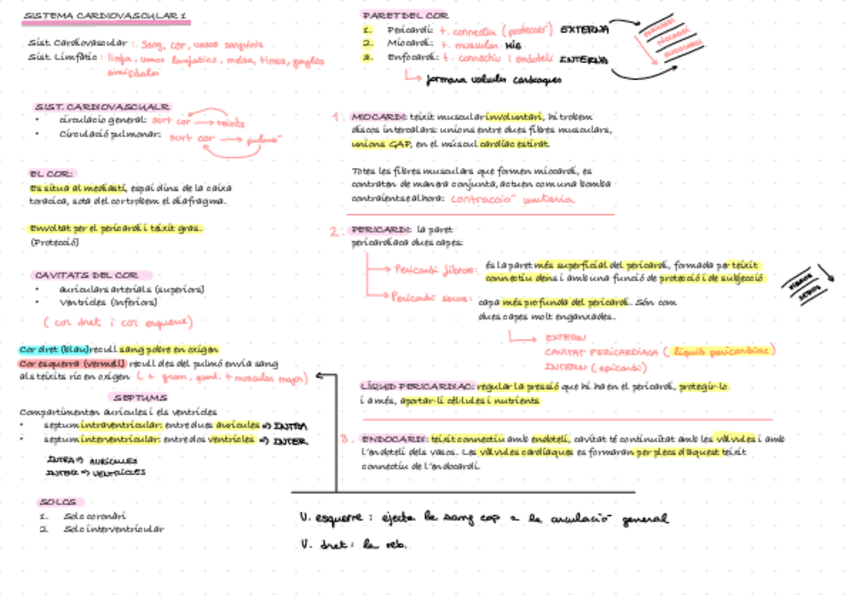 SISTEMA CARDIOVASCULAR 1
Sist. Cardiovascular : Sang, cor, vasos sanguinis
Sist. Limfàtic : limfa, vasos limfàtics, melsa, timus, ganglis
amígdales
SIST. CARDIOVASCUALR
• circulació general: surt cor → teixits
• Circulació pulmonar: surt cor → pulmó
EL COR:
Es situa al mediastí, espai dins de la caixa
toracica, sota del cor trobem el diafragma.
Envoltat per el pericardi i teixit gras.
(Protecció)
CAVITATS DEL COR
• auriculars arterials (superiors)
• Ventricles (inferiors)
( cor dret i cor esquerre)
Cor dret (blau) recull sang pobre en oxigen
Cor esquerra (vermell) recull des del pulmó envia sang
als teixits ric en oxigen ( + gran, + musculan major)
SEPTUMS
Compartimenten auricules i els ventricles
• septum intraventricular: entre dues auricules => INTRA
• septum interventricular: entre dos ventricles => INTER
INTRA => AURICULES
INTER => VENTRICLES
SOLCS
1. Solc coronàri
2. Solc interventricular
PARET DEL COR
1. Pericardi: t. connectiu (protecció) EXTERNA
2. Miocardi: t. muscular MIG
3. Enfocardi: t. connectiu i endoteli INTERNA
formara valvules cardiaques
PERICARDI
MIOCARDI
ENDOCARDI
1. MIOCARDI: teixit muscular involuntari, hi trobem
discos intercalars: unions entre dues fibres musculars,
unions GAP, en el múscul cardíac estriat.
Totes les fibres musculars que formen miocardi, es
contraten de manera conjunta, actuen com una bomba
contraient-se alhora: contracció unitaria.
2. PERICARDI: la paret
pericardiaca dues capes:
Pericardi fibros: és la paret més superficial del pericardi, formada per teixit
connectiu dens i amb una funció de protecció i de subjecció
Pericardi seros: capa més profunda del pericardi. Són com
dues capes molt enganxades.
FIBROS
SEROS
EXTERN
CAVITAT PERICARDIACA ( líquid pericardiac)
INTERN (epicardi)
LÍQUID PERICARDIAC: regular la pressió que hi ha en el pericardi, protegir-lo
i a més, aportar-li cèl·lules i nutrients
3. ENDOCARDI: teixit connectiu amb endoteli, cavitat té continuïtat amb les vàlvules i amb
l'endoteli dels vasos. Les vàlvules cardíaques es formaran per plecs d'aquest teixit
connectiu de l'endocardi.
V. esquerre : ejecta la sang cap a la circulació general
V. dret : la reb.